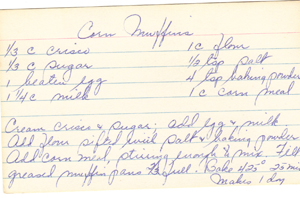 Corn Muffins
1/3 c crisco 1 c flour
1/3 c sugar 1/2 tsp salt
1 beaten egg 4 tsp baking powder
1 1/4 c milk 1 c corn meal
Cream crisco & sugar: add egg & milk
Add flour sifted with salt & baking powder
Add corn meal, stirring enough to mix. Fill
greased muffin pans 2/3 full. Bake 425° 25 min
Makes 1 doz